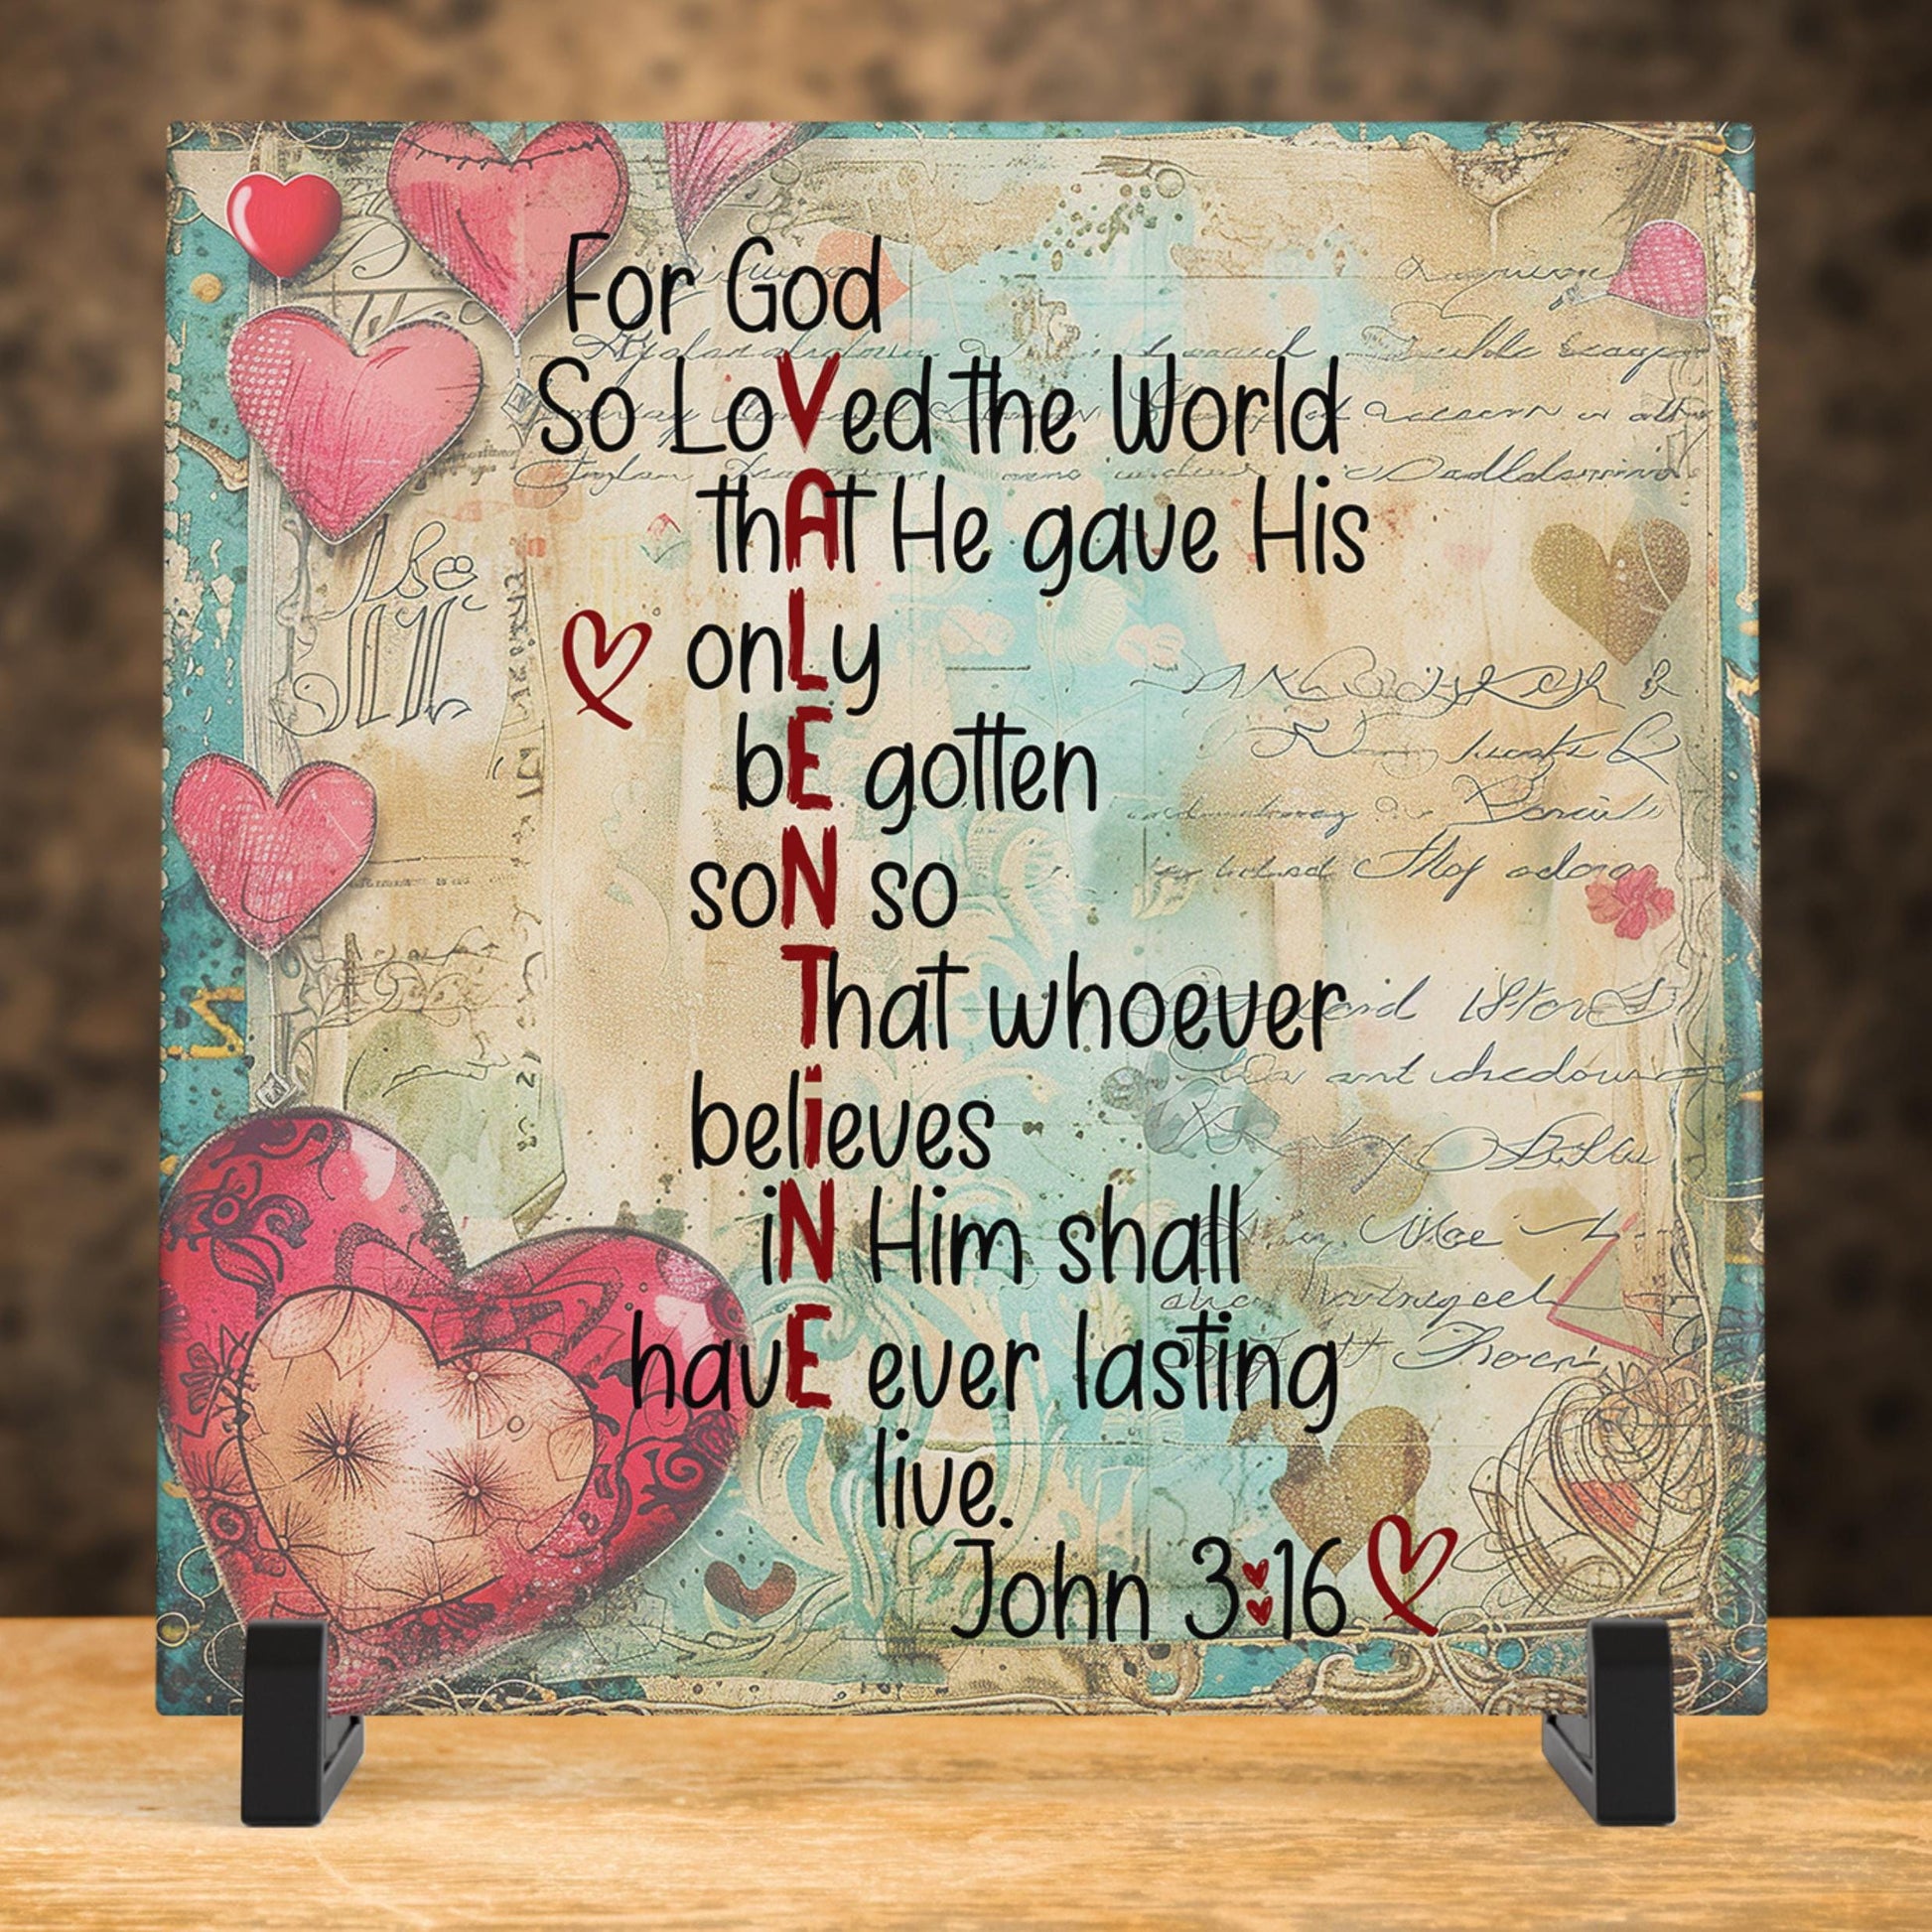 For God
So LoVed the World
thAt He gave His
onLy
bE gotten
soN so
That whoever
believes
iN Him shall
havE ever lasting
live.
John 3:16